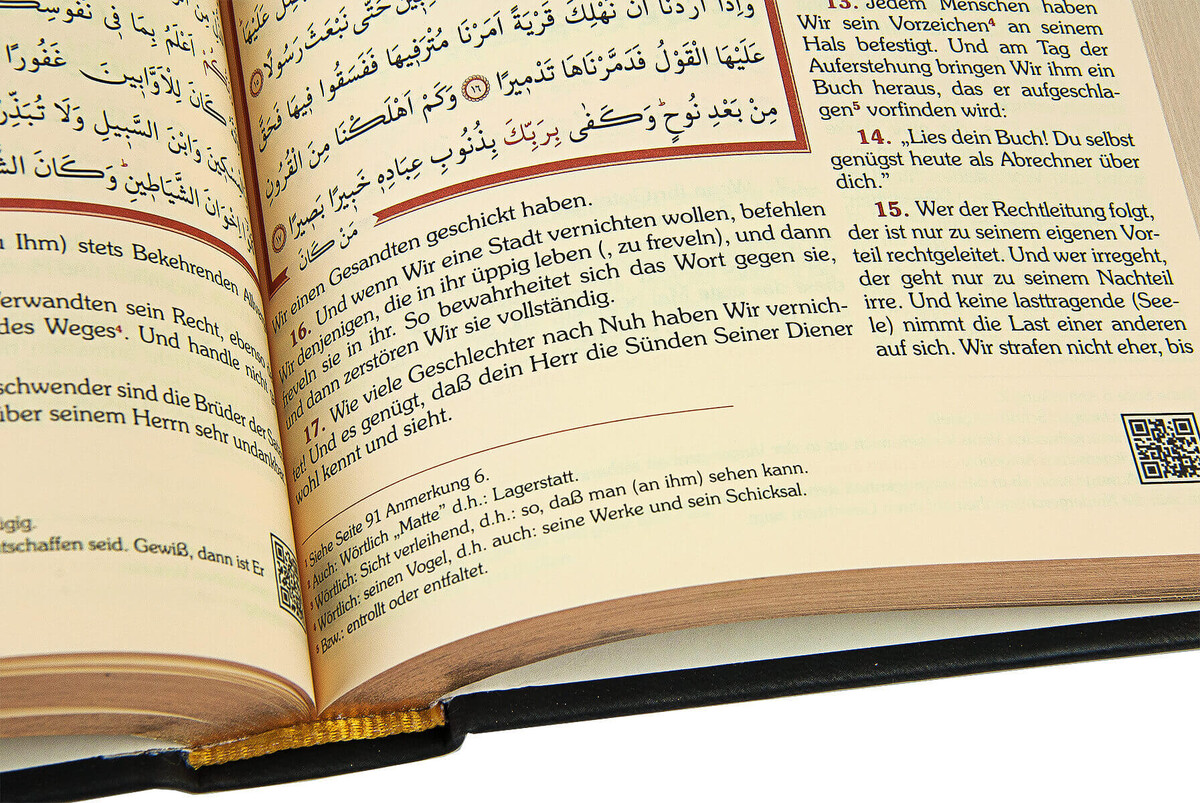 أَعْلَمُ بِمَا فٖي نُفُوسِكُمْ
كَانَ لِلْاَوَّابٖينَ غَفُورًا
وَابْنَ السَّبٖيلِ وَلَا تُبَذِّرْ
اِخْوَانَ الشَّيَاطٖينِ وَكَانَ
Ihm) stets Bekehrenden
erwandten sein Recht, ebenso
des Weges⁴. Und handle nicht
schwender sind die Brüder der
über seinem Herrn sehr undankbar
ügig.
tschaffen seid. Gewiß, dann ist Er
حَتّٰى نَبْعَثَ رَسُولًا ١٥
وَاِذَا اَرَدْنَا اَنْ نُهْلِكَ قَرْيَةً اَمَرْنَا مُتْرَفٖيهَا فَفَسَقُوا فٖيهَا فَحَقَّ
عَلَيْهَا الْقَوْلُ فَدَمَّرْنَاهَا تَدْمٖيرًا ١٦ وَكَمْ اَهْلَكْنَا مِنَ الْقُرُونِ
مِنْ بَعْدِ نُوحٍ وَكَفٰى بِرَبِّكَ بِذُنُوبِ عِبَادِهٖ خَبٖيرًا بَصٖيرًا ١٧
مَنْ كَانَ
Wir einen Gesandten geschickt haben.
16. Und wenn Wir eine Stadt vernichten wollen, befehlen
Wir denjenigen, die in ihr üppig leben (, zu freveln), und dann
freveln sie in ihr. So bewahrheitet sich das Wort gegen sie,
und dann zerstören Wir sie vollständig.
17. Wie viele Geschlechter nach Nuh haben Wir vernich-
tet! Und es genügt, daß dein Herr die Sünden Seiner Diener
wohl kennt und sieht.
13. Jedem Menschen haben
Wir sein Vorzeichen⁴ an seinem
Hals befestigt. Und am Tag der
Auferstehung bringen Wir ihm ein
Buch heraus, das er aufgeschla-
gen⁵ vorfinden wird:
14. „Lies dein Buch! Du selbst
genügst heute als Abrechner über
dich.”
15. Wer der Rechtleitung folgt,
der ist nur zu seinem eigenen Vor-
teil rechtgeleitet. Und wer irregeht,
der geht nur zu seinem Nachteil
irre. Und keine lasttragende (See-
le) nimmt die Last einer anderen
auf sich. Wir strafen nicht eher, bis
¹ Siehe Seite 91 Anmerkung 6.
² Auch: Wörtlich „Matte” d.h.: Lagerstatt.
³ Wörtlich: Sicht verleihend, d.h.: so, daß man (an ihm) sehen kann.
⁴ Wörtlich: seinen Vogel, d.h. auch: seine Werke und sein Schicksal.
⁵ Bzw.: entrollt oder entfaltet.